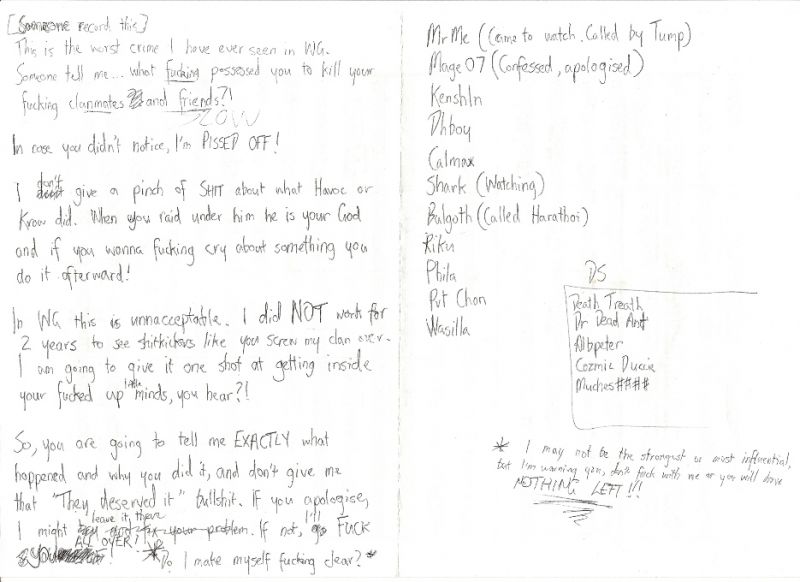 [Someone record this]
This is the worst crime I have ever seen in WG.
Someone tell me... what fucking possessed you to kill your
fucking clanmates and friends?!
SLOW
In case you didn't notice, I'm PISSED OFF!
I don't give a pinch of SHIT about what Havoc or
Krow did. When you raid under him he is your God
and if you wanna fucking cry about something you
do it afterward!
In WG this is unnacceptable. I did NOT work for
2 years to see shitkickers like you screw my clan over.
I am going to give it one shot at getting inside
your fucked up little minds, you hear?!
So, you are going to tell me EXACTLY what
happened and why you did it, and don't give me
that "They deserved it" bullshit. If you apologise,
I might leave it there your problem. If not, I'll FUCK
YOU ALL OVER!
* Do I make myself fucking clear? *
Mr Me (Came to watch. Called by Tump)
Mage 07 (Confessed, apologised)
Kensh1n
Dhboy
Calmax
Shark (Watching)
Bulgoth (Called Harathoi)
Riku
Phila
Put Chon
Wasilla
DS
Death Treath
Dr Dead Ant
Albpeter
Cozmic Duccie
Muches####
* I may not be the strongest or most influential,
but I'm warning you, don't fuck with me or you will have
NOTHING LEFT!!!